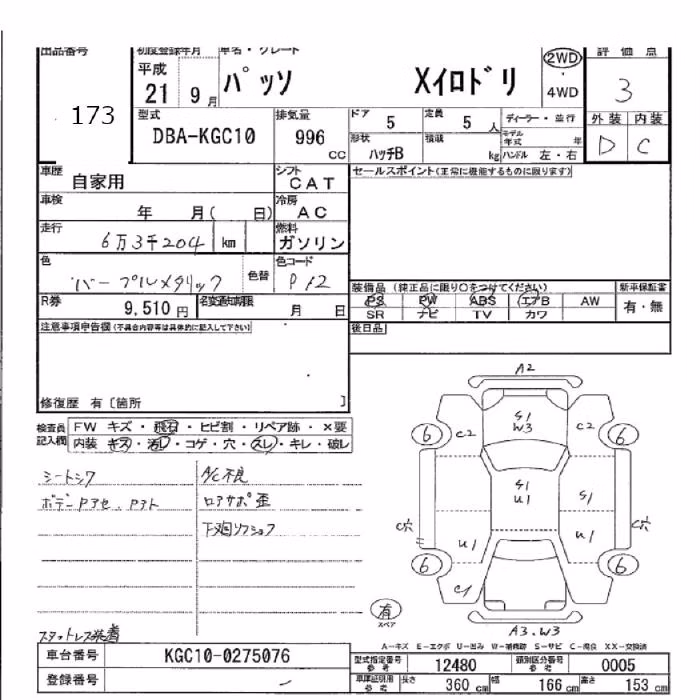 出品番号 初度登録年月 車名・グレード 2WD 評価点
173 平成 21 9 月 パッソ Xイロドリ ・ 4WD 3
型式 DBA-KGC10 排気量 996 CC ドア 5 定員 5 人 ディーラー・並行 外装 内装
形状 ハッチB 積載 kg モデル年式 年 ハンドル 左・右 D C
車歴 自家用 シフト CAT セールスポイント(正常に機能するものに限ります)
車検 年 月( 日) 冷房 AC
走行 6万3千204 km 燃料 ガソリン
色 パープルメタリック 色替 色コード P12
装備品 (純正品に限り○をつけてください) 新車保証書
PS PW ABS エアB AW 有・無
SR ナビ TV カワ
R券 9,510 円 名変通知期限 月 日
注意事項申告欄(不具合内容等は具体的に記入して下さい) 後日品
修復歴 有〔箇所 〕
検査員 FW キズ・飛石・ヒビ割・リペア跡・×要
記入欄 内装 キズ・汚レ・コゲ・穴・スレ・キレ・破レ
シートシワ A/C不良
ボデーPアセ、Pアト ロアサポ歪
下廻リフショク
スタットレス装着
A2
S1 W3
C2 C2
6 6
S1 U1 S1
C穴 U1 U1 C穴
6 6
C1
有 スペア
A3.W3
A-キズ E-エクボ U-凹み W-補修跡 S-サビ C-腐食 XX-交換済
車台番号 KGC10-0275076
登録番号 -
型式指定番号 参考 12480 類別区分番号 参考 0005
車庫証明用 参考 長さ 360 cm 幅 166 cm 高さ 153 cm